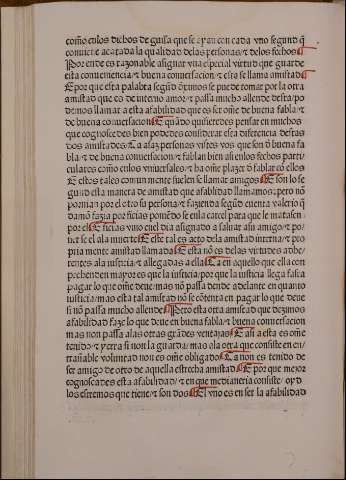 como enlos dichos de guisa que se ayan con cada vno segund q̃
conuiene acatada la qualidad delas personas ⁊ delos fechos
Por ende es razonable asignar vna especial virtud que guarde
esta conueniencia ⁊ buena conuersacion ⁊ esta se llama amistad
E por que esta palabra segũd diximos se puede tomar por la otra
amistad que es de interno amor ⁊ passa mucho allende desta / po
demos llamar a esta afabilidad que es ser onẽ de buena fabla ⁊
de buena conuersacion E quãdo quisieredes pensar en muchos
que cognoscedes bien podedes considerar esta diferencia destas
dos amistades Ca asaz personas vistes vos que son d̃ buena fa
bla ⁊ de buena conuersacion ⁊ fablan bien asi enlos fechos parti
culares como enlos vniuersales ⁊ ha onẽ plazer d̃ fablar cõ ellos
E estos tales comun mente suelen se llamar amigos E son lo se
gund esta manera de amistad que afabilidad llamamos: pero nõ
pornia por el otro su persona ⁊ fazienda segũd cuenta valerio q̃
damõ fazia por ficias poniẽdo se enla carcel para que le matasen
por el E ficias vino enel dia asignado a saluar asu amigo / ⁊ po
ner se el ala muerte E este tal es acto dela amistad interna ⁊ pro
pria mente amistad llamada E esta nõ es delas virtudes adhe
rentes ala iusticia / ⁊ allegadas a ella Ca en aquello que ella con
prehenden mayor es que la iusticia / por que la iusticia llega fasta
pagar lo que onẽ deue / mas nõ passa dende adelante en quanto
iusticia / mas esta tal amistad nõ se cõtenta en pagar lo que deue
si nõ passa mucho allende Pero esta otra amistad que dezimos
afabilidad faze lo que deue en buena fabla / ⁊ buena conuersacion
mas non passa alas otras grãdes ventajas E asi a esta es onẽ
tenido / ⁊ yerra si non la guarda / mas ala otra que consiste en en
trañable voluntad non es onẽ obligado Ca non es tenido de
ser amigo de otro de aquella estrecha amistad E por que mejor
cognoscades esta afabilidad / ⁊ en que medianeria consiste / oyd
los estremos que tiene / ⁊ son dos El vno es en ser la afabilidad